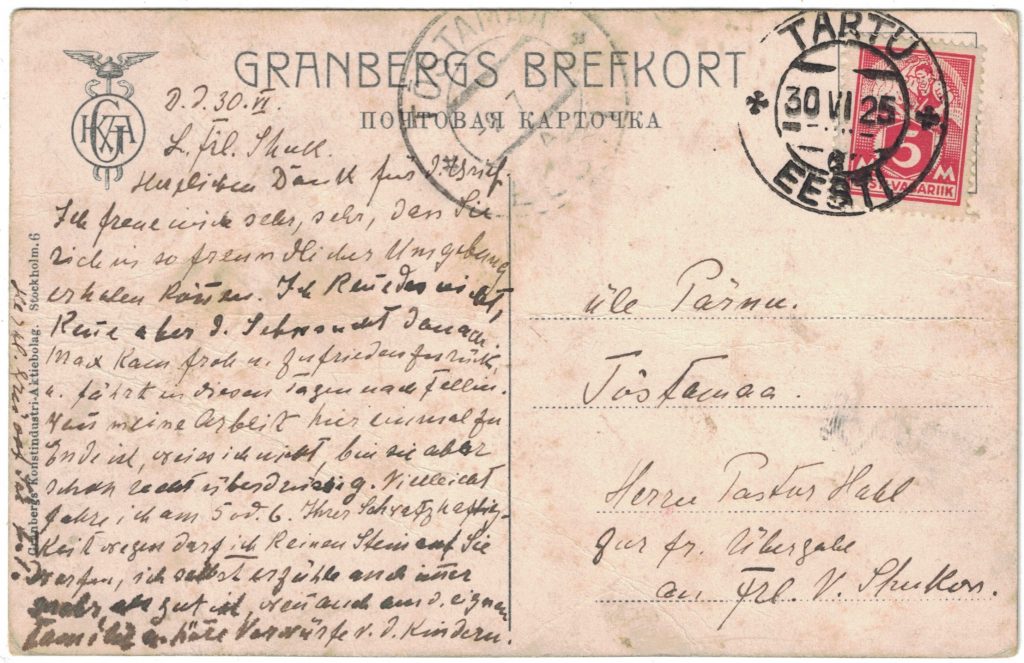 GRANBERGS BREFKORT
ПОЧТОВАЯ КАРТОЧКА
TÕSTAMAA
TARTU
30 VI 25
EESTI
5
M
VABARIIK
HKGA
D. d. 30. VI.
L. Frl.
Herzlichen Dank für d. Brief.
Ich freue mich sehr, sehr, dass Sie
sich in so freundlicher Umgebung
erholen können. Ich kenne es nicht,
kenne aber d. Sehnsucht danach.
Max kam froh u. zufrieden zurück
u. fährt in diesen Tagen nach Fellin.
Wann meine Arbeit hier einmal zu
Ende ist, weiss ich nicht, bin sie aber
schon recht überdrüssig. Vielleicht
fahre ich am 5 od. 6. Ihrer Schwatzhaftig-
keit wegen darf ich keinen Stein auf Sie
werfen, ich selbst erzähle auch immer
mehr, als gut ist, wenn auch aus d. eignen
Familie u. höre Vorwürfe v. d. Kindern.
Granbergs Konstindustri-Aktiebolag. Stockholm. 6
üle Pärnu.
Töstamaa.
Herrn Pastor Hahl
zur fr. Übergabe
an Frl. V.